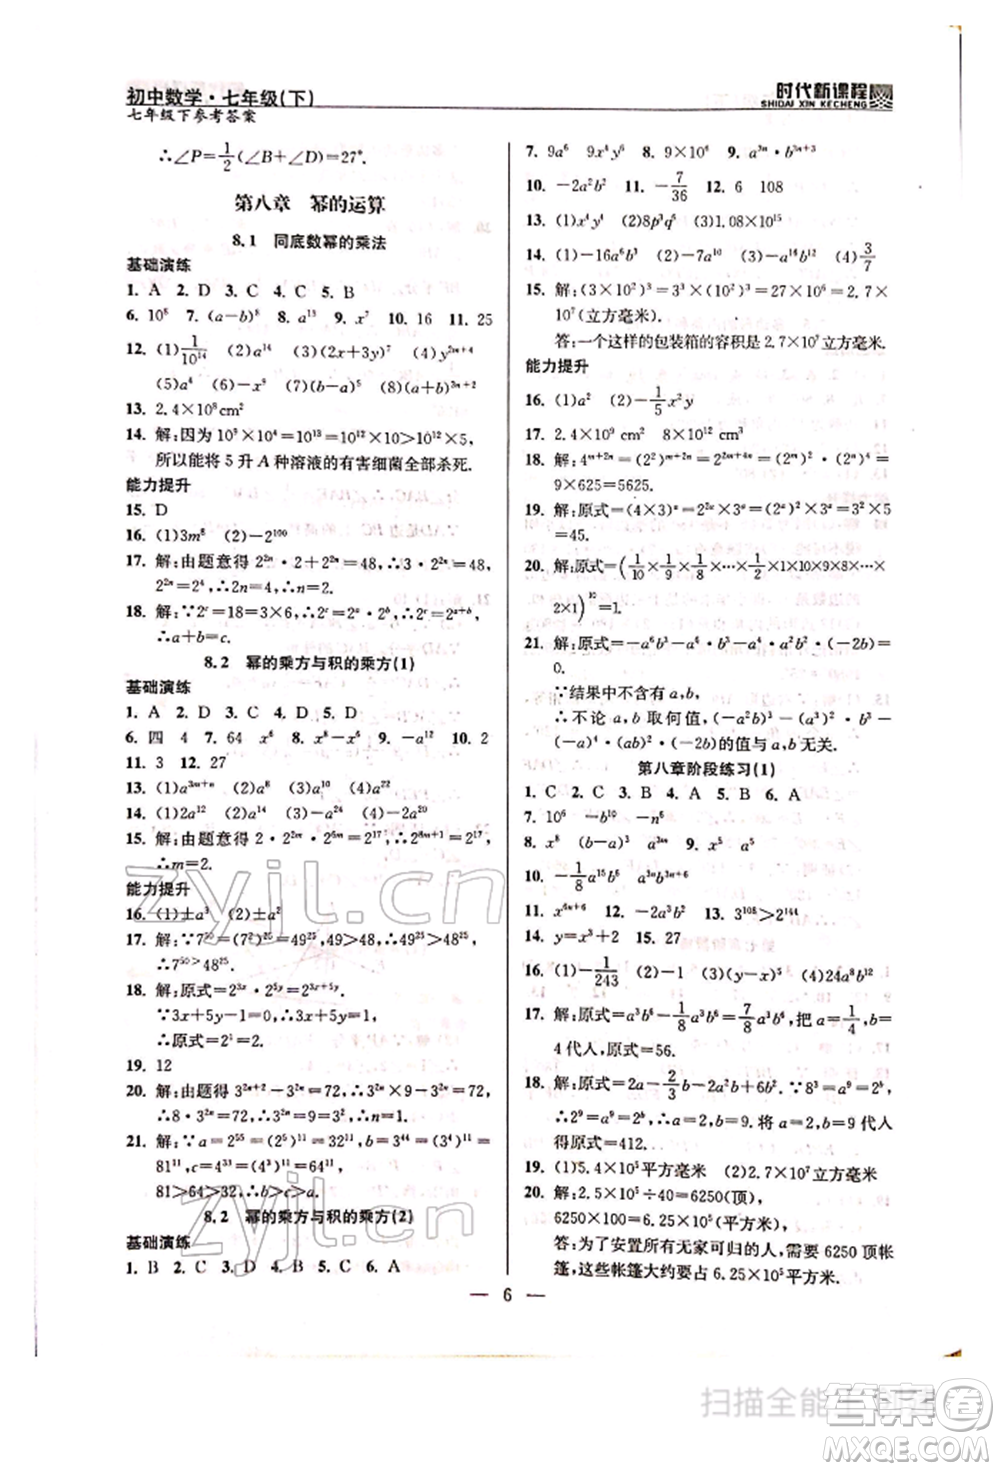 初中数学·七年级(下)
七年级下参考答案
时代新课程
SHIDAI XIN KECHENG
∴∠P=1/2(∠B+∠D)=27°.
第八章 幂的运算
8.1 同底数幂的乘法
基础演练
1. A 2. D 3. C 4. C 5. B
6. 10⁸ 7. (a-b)⁸ 8. a¹³ 9. x⁷ 10. 16 11. 25
12. (1)1/10¹⁴ (2)a⁷ (3)(2x+3y)⁷ (4)y²ᵐ⁺⁴
(5)a⁴ (6)-x⁹ (7)(b-a)⁵ (8)(a-b)³ⁿ⁺²
13. 2.4×10⁸cm²
14. 解:因为10³×10⁴=10¹³=10¹²×10>10¹²×5,
所以能将 5 升 A 种溶液的有害细菌全部杀死.
能力提升
15. D
16. (1)3m⁸ (2)-2¹⁰⁰
17. 解:由题意得2²ⁿ·2+2²ⁿ=48,∴3×2²ⁿ=48,
2²ⁿ=2⁴,∴2n=4,∴n=2.
18. 解:∵2ᶜ=18=3×6,∴2ᶜ=2ᵃ·2ᵇ,∴2ᶜ=2ᵃ⁺ᵇ,
∴a+b=c.
8.2 幂的乘方与积的乘方(1)
基础演练
1. A 2. D 3. C 4. D 5. D
6. 四 4 7. 64 x⁶ 8. x⁶-x⁶ 9. -a¹² 10. 2
11. 3 12. 27
13. (1)a³ᵐ⁺ⁿ (2)a²⁶ (3)a²⁰ (4)a²²
14. (1)2a¹² (2)a¹⁰ (3)-a¹⁰ (4)-2a²⁰
15. 解:由题意得 2·2²ᵐ·2⁶ᵐ=2¹⁷,∴2⁸ᵐ⁺¹=2¹⁷,
∴m=2.
能力提升
16. (1)±a³ (2)±a²
17. 解:∵7⁵⁰=(7²)²⁵=49²⁵,49>48,∴49²⁵>48²⁵,
∴7⁵⁰>48²⁵.
18. 解:原式=2³ˣ·2⁵ʸ=2³ˣ⁺⁵ʸ.
∵3x+5y-2=0,∴3x+5y=2,
∴原式=2²=4.
19. 12
20. 解:由题得3²ⁿ⁺²-3²ⁿ=72,∴3²ⁿ·3²-3²ⁿ=72,
∴8·3²ⁿ=72,∴3²ⁿ=9=3²,∴2n=2,∴n=1.
21. 解:∵a=2⁵⁵=(2⁵)¹¹=32¹¹,b=3⁴⁴=(3⁴)¹¹=
81¹¹,c=4³³=(4³)¹¹=64¹¹,
81>64>32,∴b>c>a.
8.2 幂的乘方与积的乘方(2)
基础演练
1. B 2. C 3. C 4. B 5. C 6. A
7. 9a⁶ 9x⁴y⁶ 8. 9×10⁴ 9. a³ⁿ·b³ⁿ⁺³
10. -2a²b² 11. -7/36 12. 6 108
13. (1)x⁴y⁴ (2)8p³q⁶ (3)1.08×10¹⁵
14. (1)-16a⁶b³ (2)-7a¹⁰ (3)-12a⁶b² (4)3/7
15. 解:(3×10²)³=3³×(10²)³=27×10⁶=2.7×
10⁷(立方毫米).
答:一个这样的包装箱的容积是2.7×10⁷立方毫米.
能力提升
16. (1)a² (2)-1/5x²y
17. 2.4×10⁹ cm² 8×10¹² cm³
18. 解:4ᵐ⁺ⁿ=(2²)ᵐ⁺ⁿ=2²ᵐ⁺²ⁿ=(2ᵐ)²·(2ⁿ)²=
9×625=5625.
19. 解:原式=(4×3)ᵃ=(2×2×3)ᵃ=(2ᵃ)²·3ᵃ=3²×5
=45.
20. 解:原式=(1/10×1/9×1/8×…×1/2×1×10×9×8×…×
2×1)¹⁰=1.
21. 解:原式=-a⁶b³·b³-a⁴·a²b⁶-a⁶b³·(-2b³)=
0.
∵结果中不含有 a,b,
∴不论 a,b 取何值,(-a²b)³·b³-(-a²)²·
(-ab³)²-(-a²b)³·(-2b)的值与 a,b无关.
第八章阶段练习(1)
1. C 2. C 3. B 4. A 5. B 6. A
7. 10⁶ -b¹⁰ -n⁶
8. x⁶ (b-a)³ a³ⁿ⁺³ 9. x⁵ a⁵
10. -1/8a¹⁵b⁶ a³ⁿb³ⁿ⁺⁶
11. x⁶ⁿ⁺⁶ 12. -2a²b⁴ 13. 3¹⁰⁸>2¹⁴⁴
14. y=x³+2 15. 27
16. (1)-1/243 (2)1 (3)(y-x)⁵ (4)24a⁸
17. 解:原式=a³b³-1/8a³b³=7/8a³b³,把 a=1/4,b=
4代入,原式=56.
18. 解:原式=2a-2/3a-2b+6b².∵8³=a⁹=2ᵇ,
∴2⁹=a⁹=2ᵇ,∴a=2,b=9,将 a=2,b=9 代入
得原式=412.
19. (1)5.4×10⁵平方毫米 (2)2.7×10⁷立方毫米
20. 解:2.5×10⁵÷40=6250(顶),
6250×100=6.25×10⁵(平方米).
答:为了安置所有无家可归的人,需要 6250 顶帐
篷,这些帐篷大约要占 6.25×10⁵平方米.
— 6 —
zyjl.cn
zyjl.cn
扫描全能王 创建
答案圈
MXQE.COM